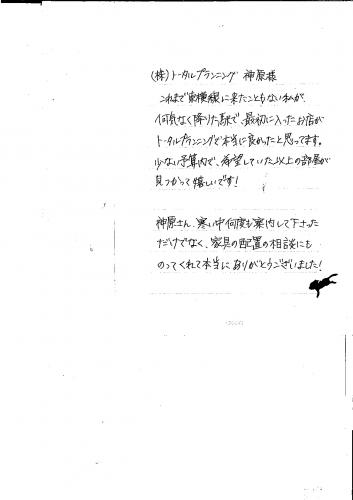 (株)トータルプランニング 神原様
これまで東横線に来たこともない私が、
何気なく降りた駅で、最初に入ったお店が
トータルプランニングで本当に良かったと思ってます。
少ない予算内で、希望していた以上の部屋が
見つかって嬉しいです!
神原さん、寒い中何度も案内して下さった
だけでなく、家具の配置の相談にも
のってくれて本当にありがとうございました!